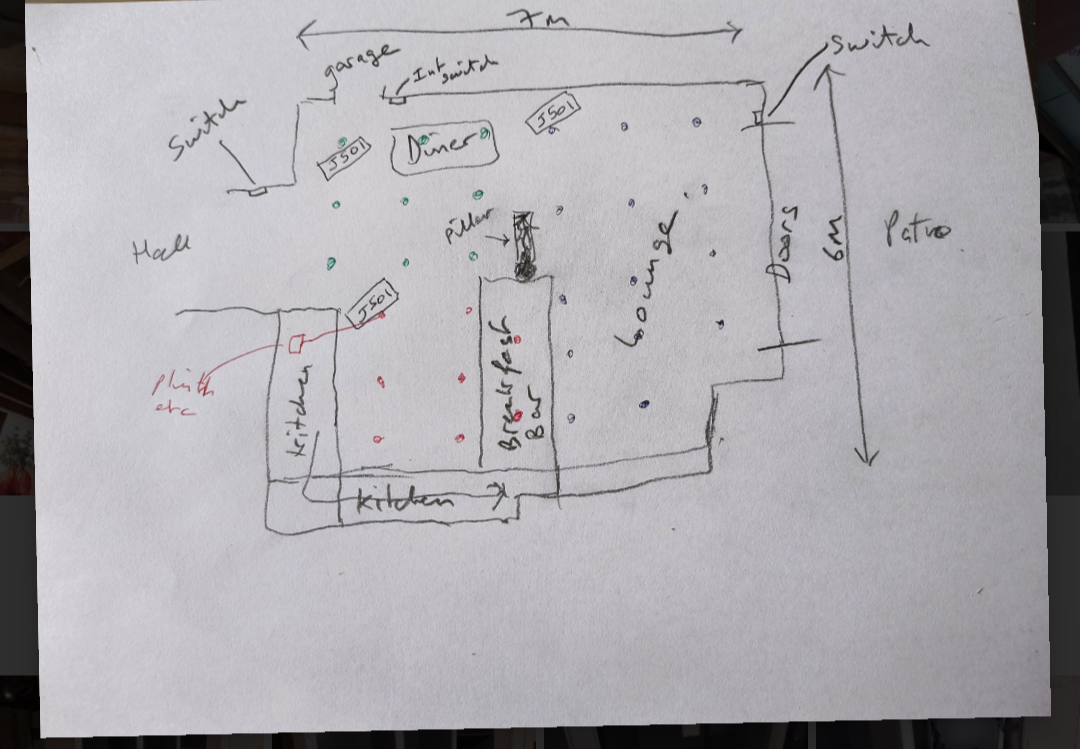 7m
Switch
garage
Int
switch
Switch
JS01
JS01
Diner
Pillar
Hall
Lounge
Doors
6M
Patio
JS01
Plinth
etc
Kitchen
Breakfast
Bar
Kitchen